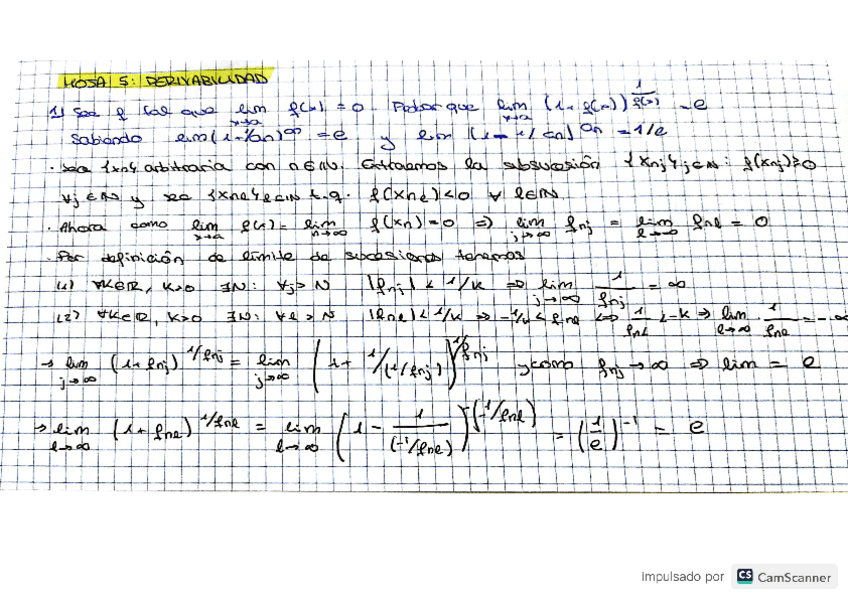 HOJA 5: DERIVABILIDAD
1) Sea f tal que lim x→a f(x) = 0. Probar que lim x→a (1+f(x))^(1/f(x)) = e
Sabiendo lim(1+1/an)^an = e y lim (1-1/an)^an = 1/e
· Sea {xn} arbitraria con n∈ℕ. Extraemos la subsucesión {xnj} j∈ℕ : f(xnj)>0
∀j∈ℕ y sea {xnl} l∈ℕ t.q. f(xnl)<0 ∀ l∈ℕ.
· Ahora como lim x→a f(x) = lim n→∞ f(xn)=0 ⇒ lim j→∞ fnj = lim l→∞ fnl = 0
· Por definición de límite de sucesiones tenemos
(1) ∀k∈ℝ, k>0 ∃N: ∀j>N |fnj| < 1/k ⇒ lim j→∞ 1/fnj = ∞
(2) ∀k∈ℝ, k>0 ∃N: ∀l>N |fnl|<1/k ⇒ -1/k < fnl ⇔ 1/fnl < -k ⇒ lim l→∞ 1/fnl = -∞
→ lim j→∞ (1+fnj)^(1/fnj) = lim j→∞ (1 + 1/(1/fnj))^(1/fnj) y como fnj→∞ ⇒ lim = e
→ lim l→∞ (1+fnl)^(1/fnl) = lim l→∞ (1 - 1/(-1/fnl))^(-(-1/fnl)) = (1/e)^-1 = e
Impulsado por CS CamScanner